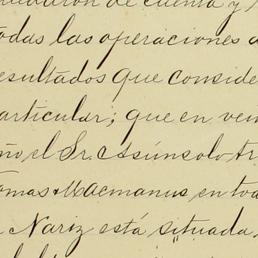 de cuenta y
todas las operaciones
resultados que conside
articular; que en ven
ño el Sr. Asúnsolo Ar
Tomas Macmanus, en to
Nariz está situada